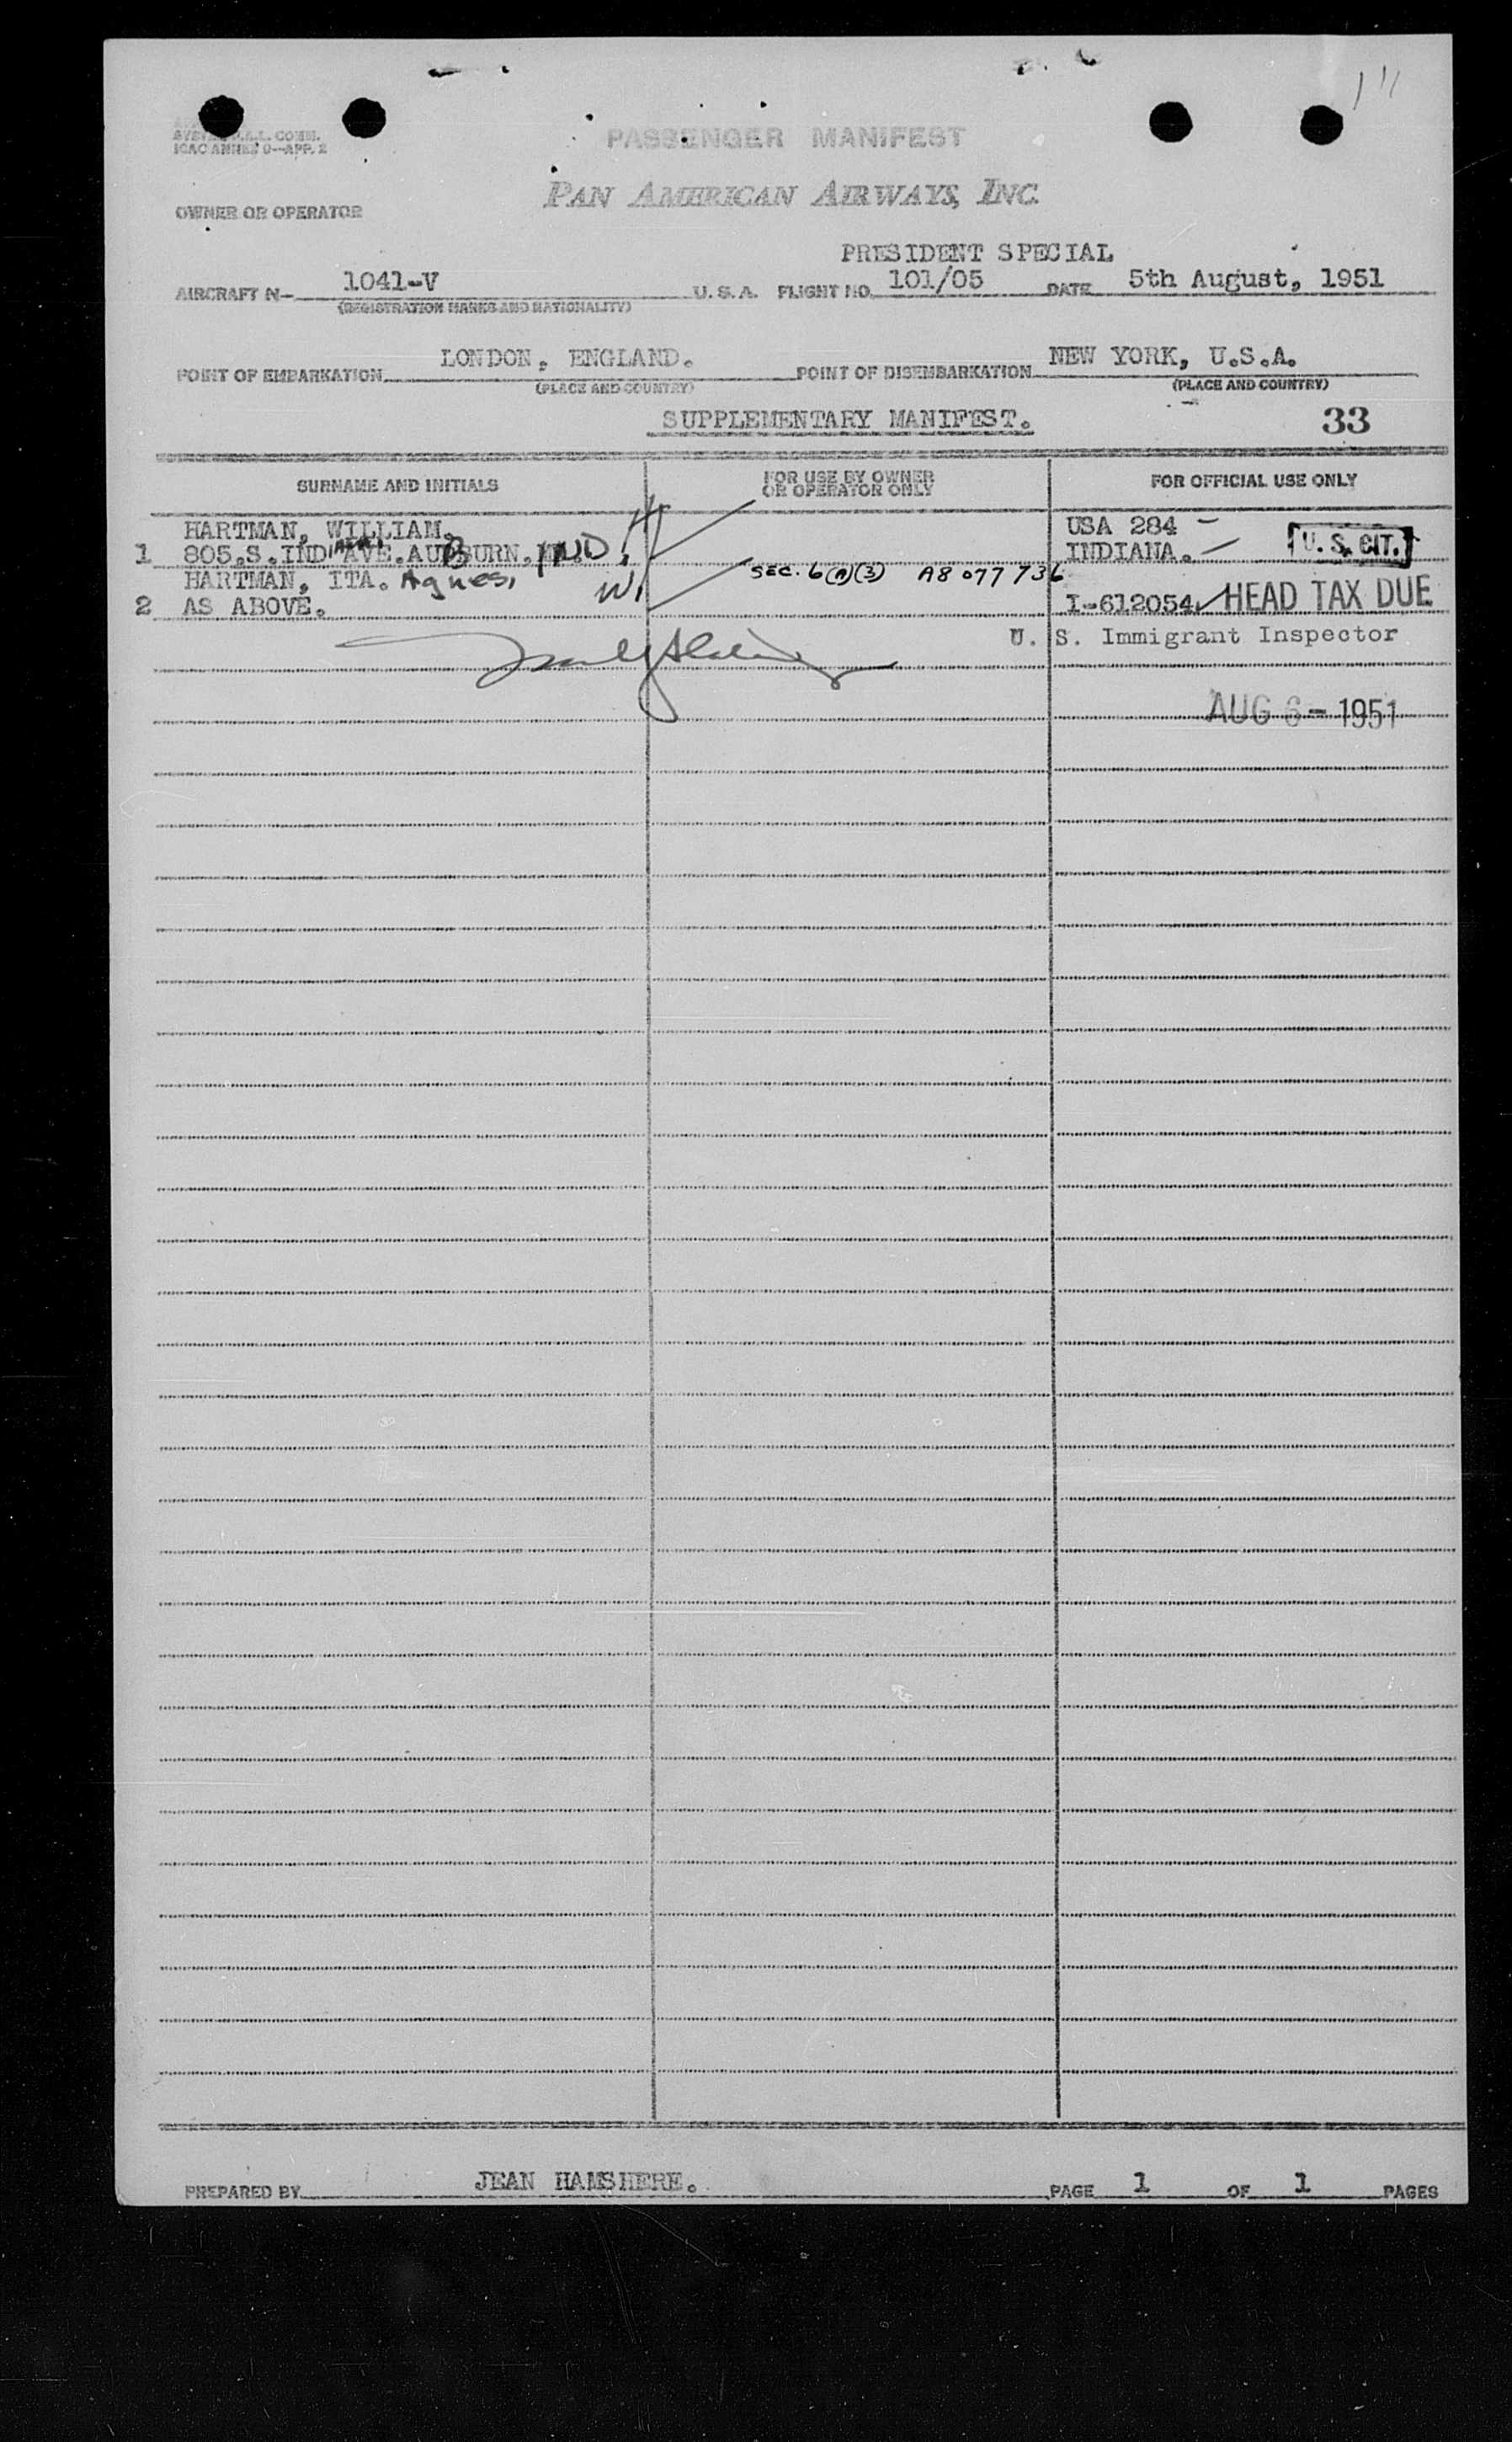 I" 
I.A.L. COMM.
ICAO ANNEX 9—APP. 2
PASSENGER MANIFEST
PAN AMERICAN AIRWAYS, INC.
OWNER OR OPERATOR
PRESIDENT SPECIAL
AIRCRAFT N- 1041-V U.S.A. FLIGHT NO. 101/05 DATE 5th August, 1951
(REGISTRATION MARKS AND NATIONALITY)
POINT OF EMBARKATION LONDON, ENGLAND. POINT OF DISEMBARKATION NEW YORK, U.S.A.
(PLACE AND COUNTRY) (PLACE AND COUNTRY)
SUPPLEMENTARY MANIFEST. 33
SURNAME AND INITIALS FOR USE BY OWNER OR OPERATOR ONLY FOR OFFICIAL USE ONLY
HARTMAN, WILLIAM. H USA 284 -
1 805.S.IND AVE.AUBURN. IND. INDIANA. - U.S. CIT.
HARTMAN, ITA. Agnes, W SEC. 6(A)(3) A8 077 736
2 AS ABOVE. I-612054 HEAD TAX DUE
U. S. Immigrant Inspector
AUG 6 - 1951
PREPARED BY JEAN HAMSHERE. PAGE 1 OF 1 PAGES